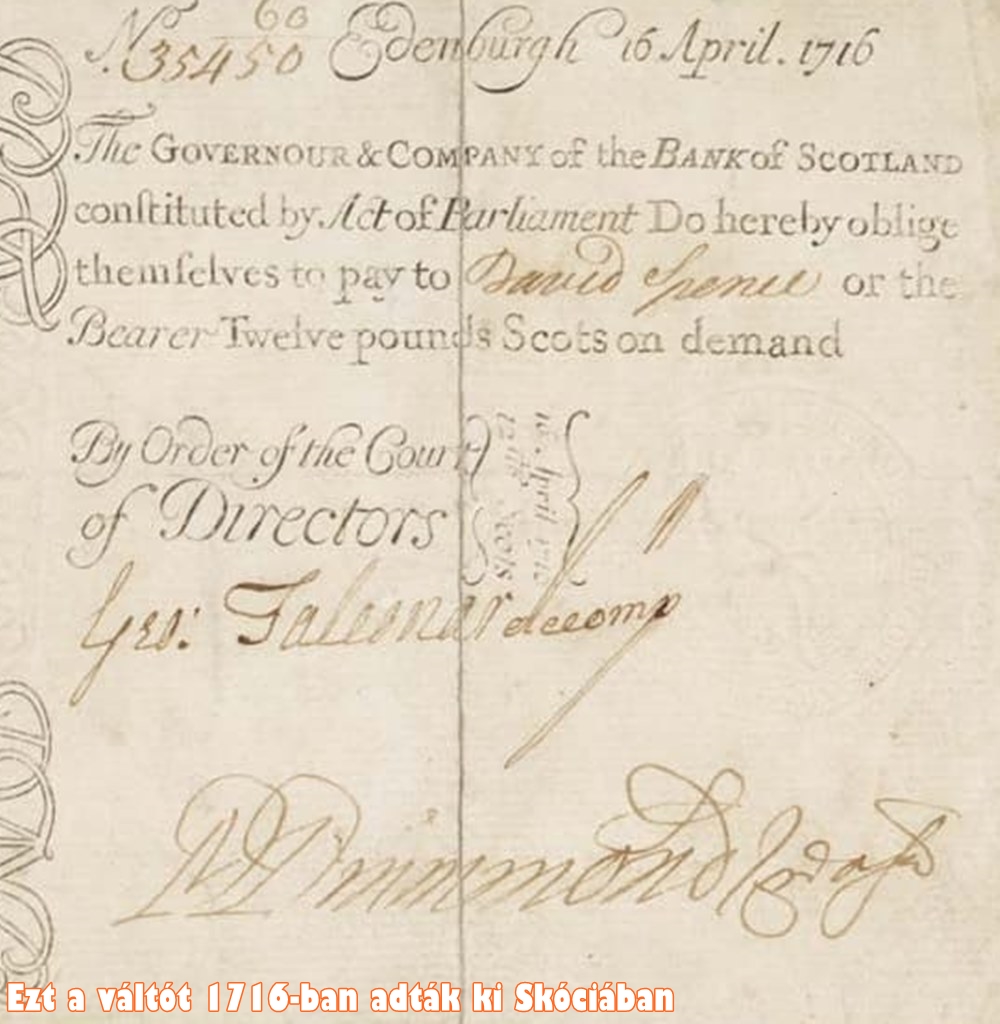 60
No. 35450 Edenburgh 16 April. 1716
The GOVERNOUR & COMPANY of the BANK of SCOTLAND
conſtituted by Act of Parliament Do hereby oblige
themſelves to pay to David Spence or the
Bearer Twelve pounds Scots on demand
By Order of the Court
of Directors
16 April 1716
12 lib Scots
Geo: accomp
Drummond
Ezt a váltót 1716-ban adták ki Skóciában